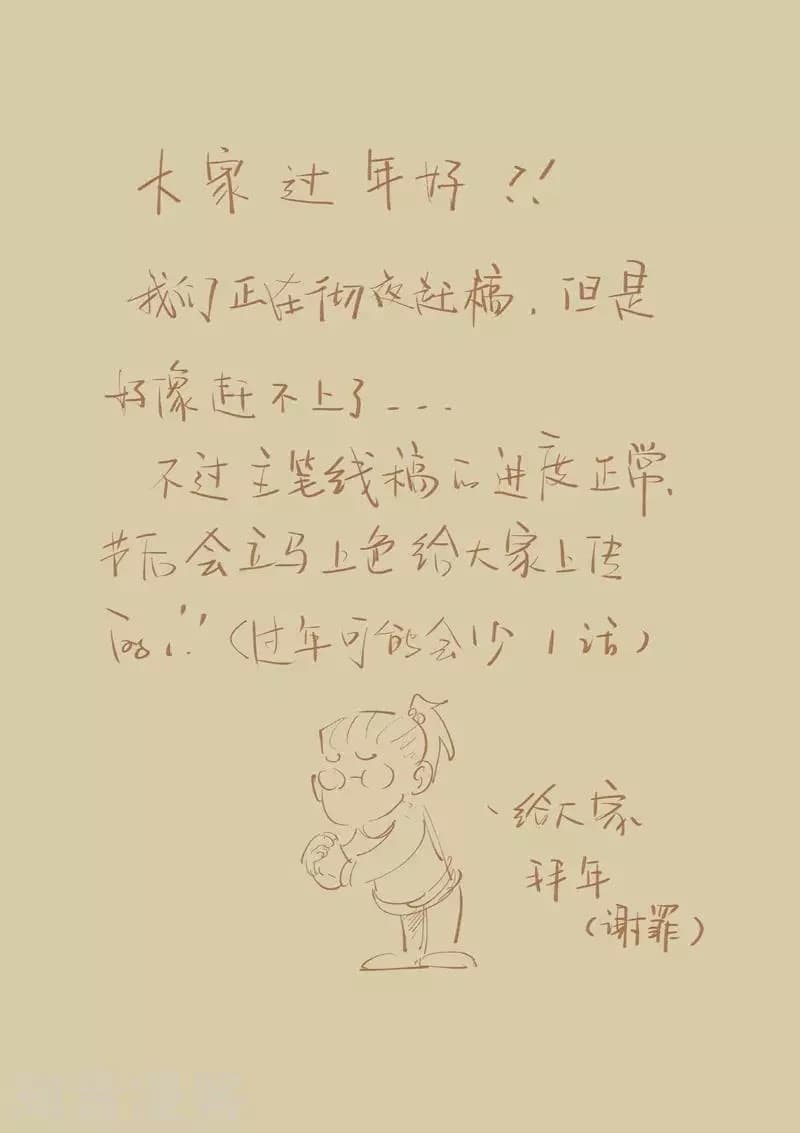 大家过年好!!
我们正在彻夜赶稿,但是
好像赶不上了---
不过主笔线稿的进度正常,
节后会立马上色给大家上传
的!!(过年可能会少1话)
、给大家
拜年
(谢罪)